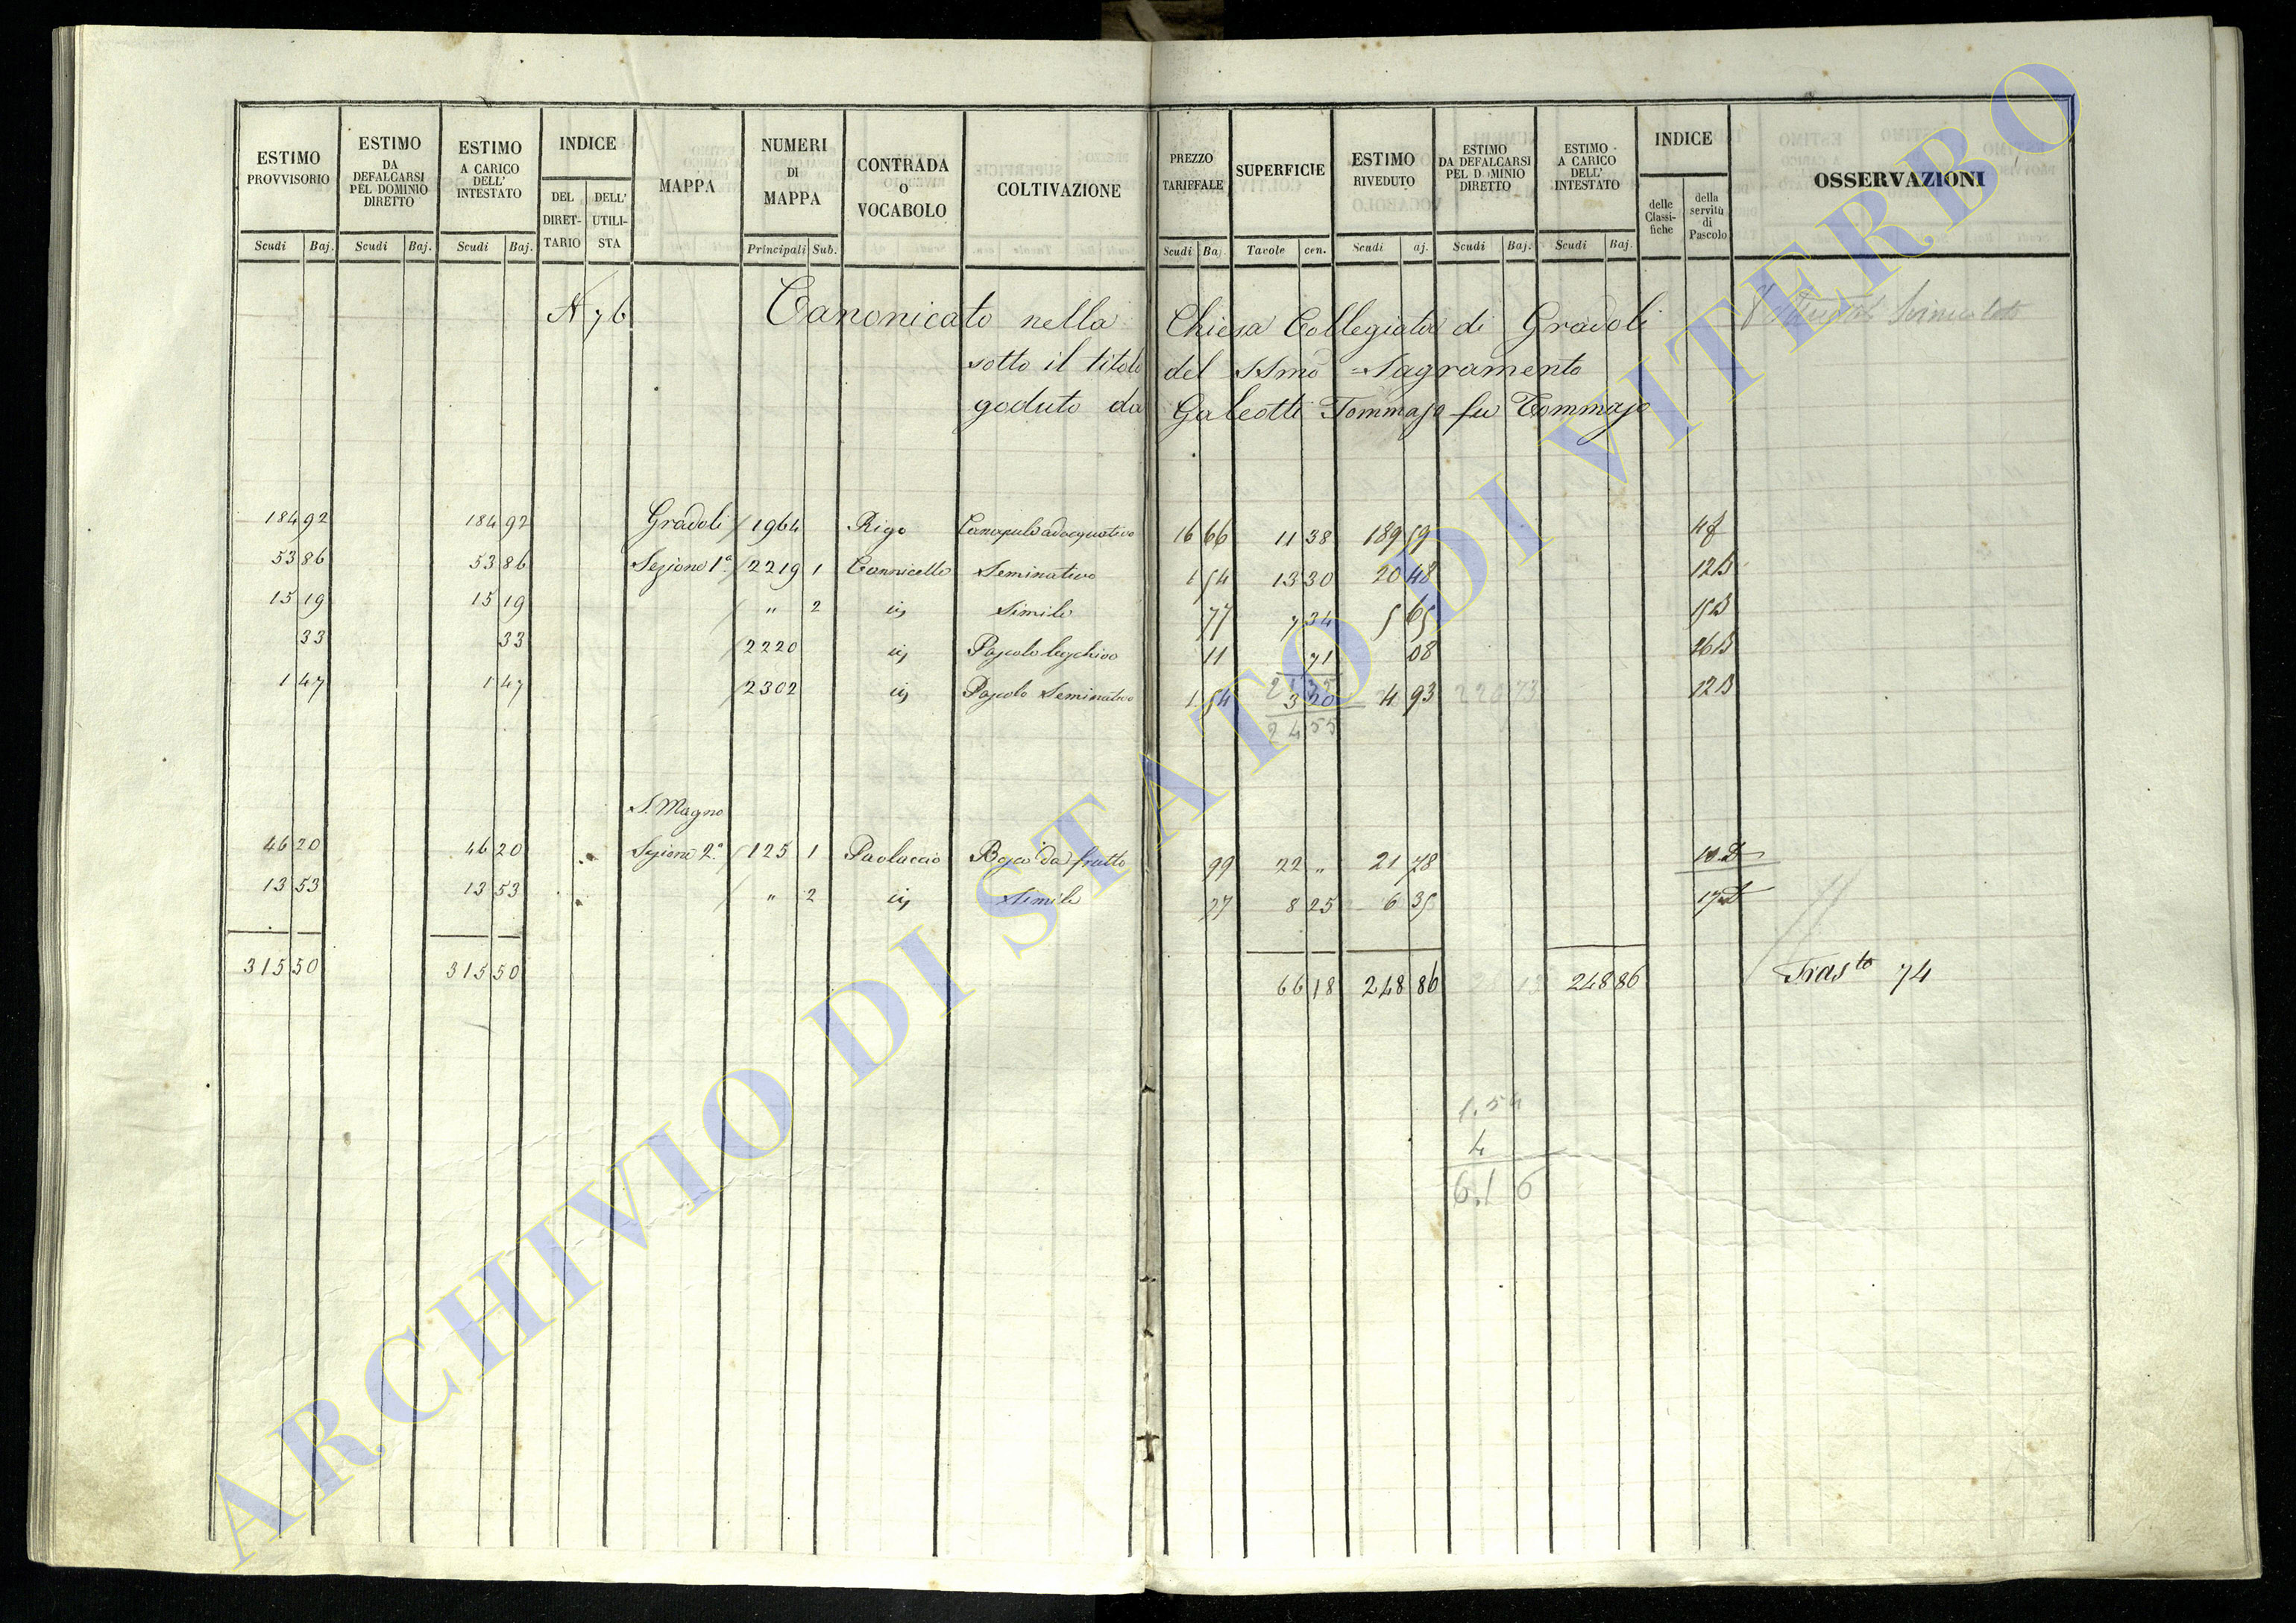 ESTIMO PROVVISORIO | ESTIMO DA DEFALCARSI PEL DOMINIO DIRETTO | ESTIMO A CARICO DELL' INTESTATO | INDICE | MAPPA | NUMERI DI MAPPA | CONTRADA O VOCABOLO | COLTIVAZIONE | PREZZO TARIFFALE | SUPERFICIE | ESTIMO RIVEDUTO | ESTIMO DA DEFALCARSI PEL D MINIO DIRETTO | ESTIMO A CARICO DELL' INTESTATO | INDICE | OSSERVAZIONI
DEL DIRETTARIO | DELL' UTILISTA | delle Classifiche | della servitù di Pascolo
Scudi | Baj. | Scudi | Baj. | Scudi | Baj. | Principali | Sub. | Scudi | Ba | Tavole | cen. | Scudi | aj. | Scudi | Baj. | Scudi | Baj.
N 76 Canonicato nella Chiesa Collegiata di Gradoli
sotto il titolo del SSmo Sagramento
goduto da Galeotti Tommaso fu Tommaso
184 92 | 184 92 | Gradoli | 1964 | Rigo | Canapulo adacquativo | 16 66 | 11 38 | 189 59
53 86 | 53 86 | Sezione 1ª | 2219 | 1 | Cannicelle | Seminativo | 1 54 | 13 30 | 20 48 | 12B
15 19 | 15 19 | " | 2 | Simile | 77 | 7 34 | 5 65 | 15B
33 | 33 | 2220 | Pascolo | 11 | 71 | 08 | 26B
1 47 | 1 47 | 2302 | Pascolo Seminativo | 1 54 | 3 20 | 4 93 | 12B
24 55
S. Magno
46 20 | 46 20 | Sezione 2ª | 125 | 1 | Paoluccio | Bosco da frutto | 99 | 22 " | 21 78
13 53 | 13 53 | " | 2 | Simile | 77 | 8 25 | 6 35
315 50 | 315 50 | 66 18 | 248 86 | 248 86 | Trasto 74
1.54
4
6.16
ARCHIVIO DI STATO DI VITERBO